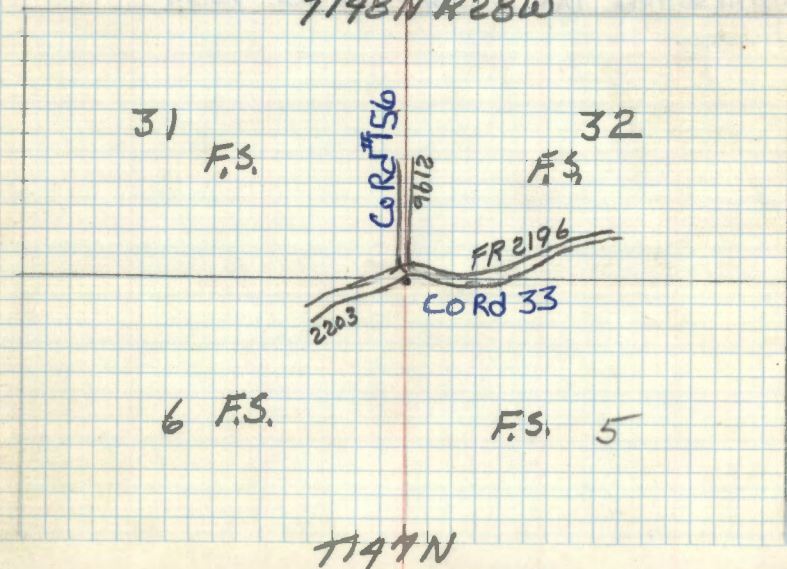 T148N R28W
31
32
F.S.
F.S.
Co Rd #156
2196
FR 2196
Co Rd 33
2203
6 F.S.
F.S. 5
T147N